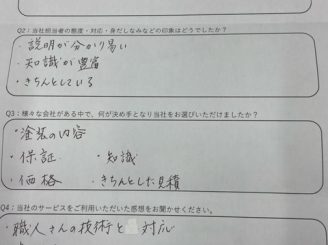 Q2:当社担当者の態度・対応・身だしなみなどの印象はどうでしたか?
・説明が分かり易い
・知識が豊富
・きちんとしている
Q3:様々な会社がある中で、何が決め手となり当社をお選びいただけましたか?
・塗装の内容
・保証 ・知識
・価格 ・きちんとした見積
Q4:当社のサービスをご利用いただいた感想をお聞かせください。
・職人さんの技術と対応